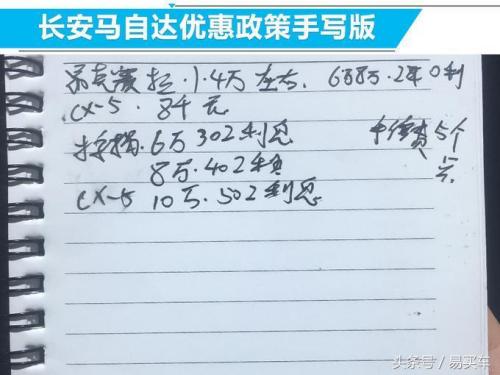 长安马自达优惠政策手写版
昂克赛拉.1.4万左右. 6万8万.2年0利
CX-5. 8千元
按揭.6万302利息 手续费5个
8万.402利息 点
CX-5 10万.502利息
头条号/易买车